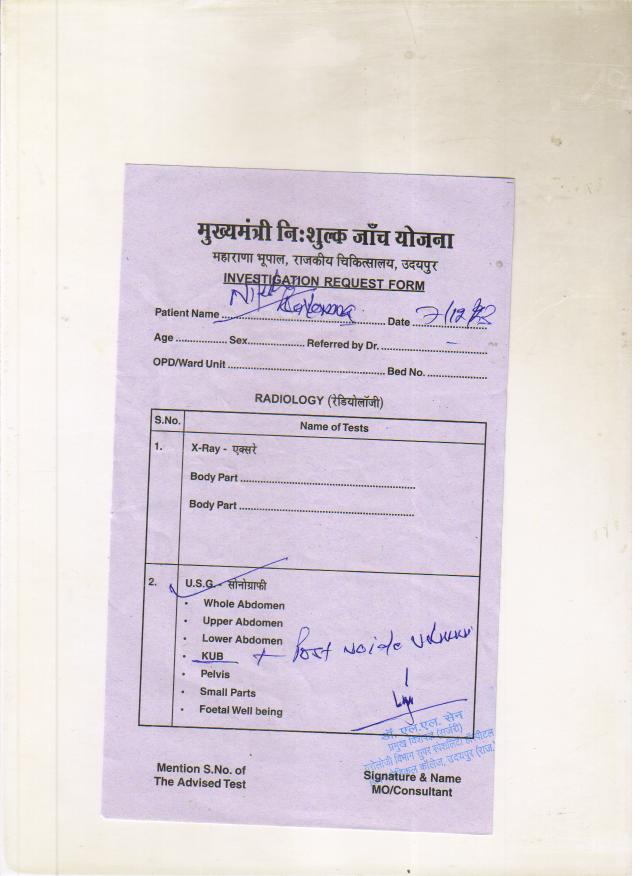 मुख्यमंत्री निःशुल्क जाँच योजना
महाराणा भूपाल, राजकीय चिकित्सालय, उदयपुर
INVESTIGATION REQUEST FORM
Patient Name ........................ Date 7/12/
Age ............... Sex.................... Referred by Dr. ................
OPD/Ward Unit ........................ Bed No. ................
RADIOLOGY (रेडियोलॉजी)
S.No. Name of Tests
1. X-Ray - एक्सरे
Body Part ........................
Body Part ........................
2. U.S.G. - सोनोग्राफी
• Whole Abdomen
• Upper Abdomen
• Lower Abdomen
• KUB + Post void volume
• Pelvis
• Small Parts
• Foetal Well being
डॉ. एल.एल. सेन
प्रमुख विशेषज्ञ (सर्जरी)
यूरोलोजी विभाग सुपर स्पेशलिटी हॉस्पीटल
मेडिकल कॉलेज, उदयपुर (राज.)
Mention S.No. of
The Advised Test
Signature & Name
MO/Consultant